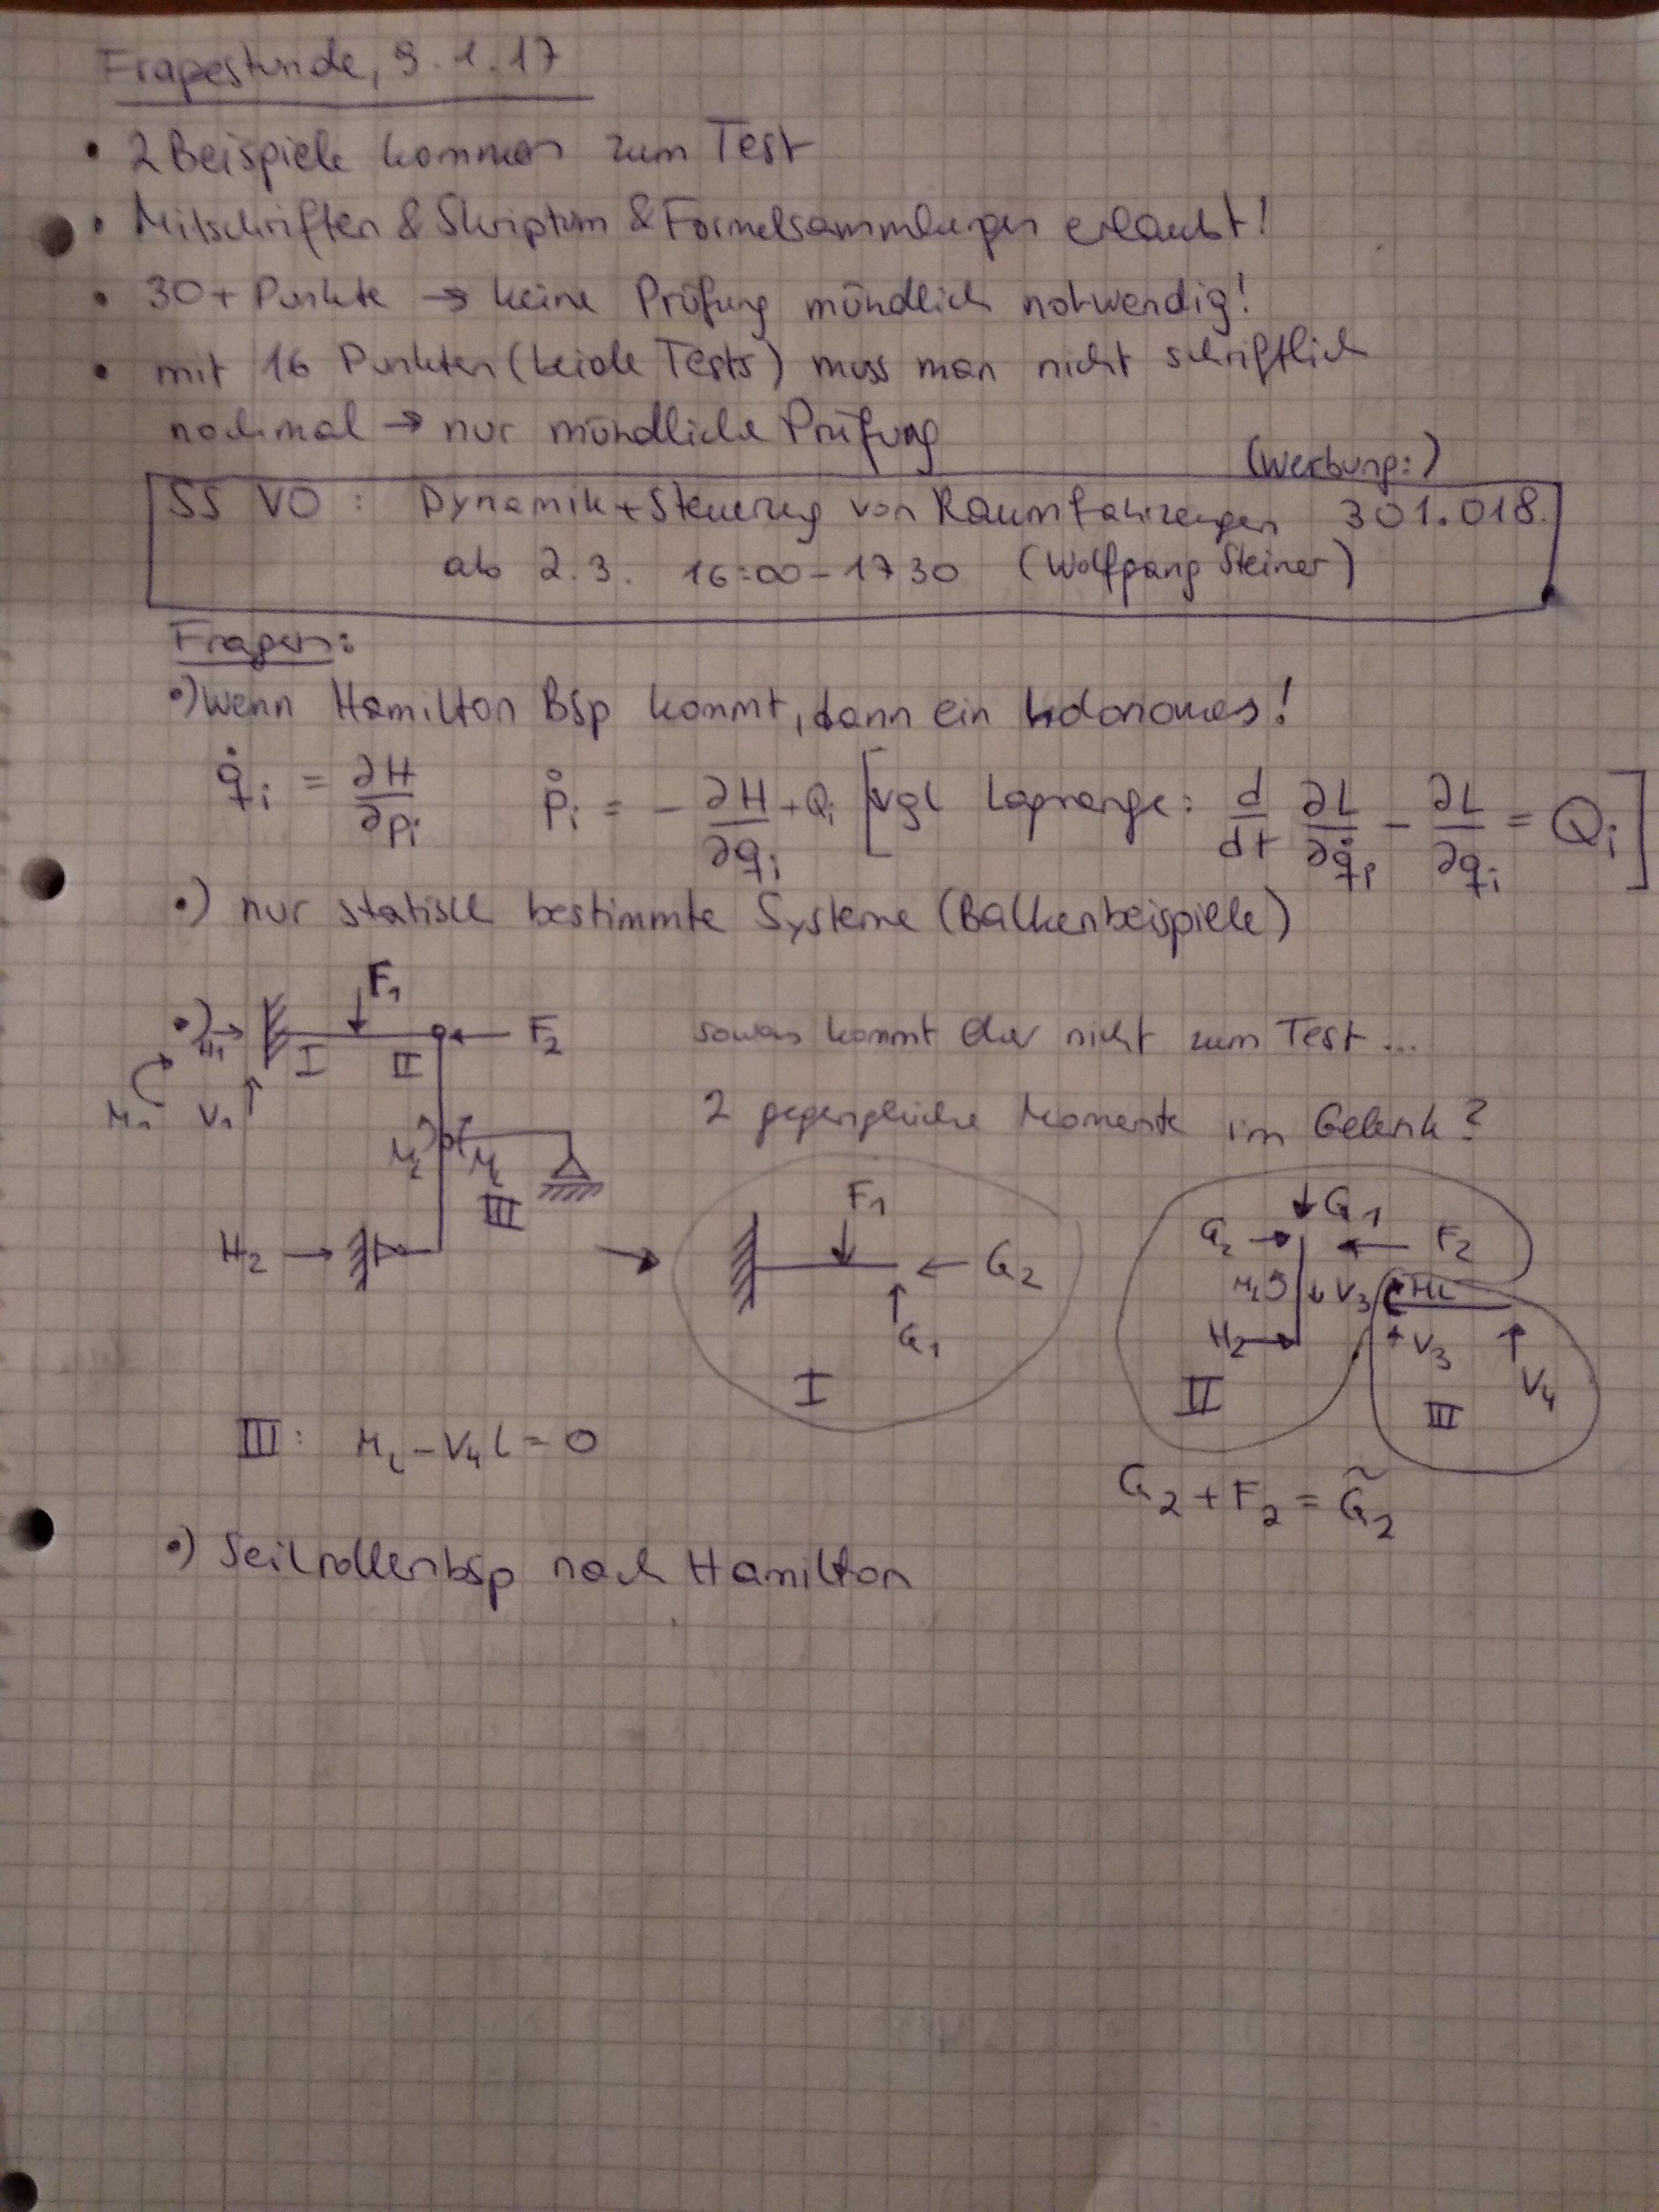 Fragestunde, 9.1.17
• 2 Beispiele kommen zum Test
• Mitschriften & Skriptum & Formelsammlungen erlaubt!
• 30+ Punkte → keine Prüfung mündlich notwendig!
• mit 16 Punkten (beide Tests) muss man nicht schriftlich
nochmal → nur mündliche Prüfung
(Werbung:)
SS VO : Dynamik + Steuerung von Raumfahrzeugen 301.018.
ab 2.3. 16:00 - 1730 (Wolfgang Steiner)
Fragen:
•) wenn Hamilton Bsp kommt, dann ein holonomes!
q̇i = ∂H/∂pi ṗi = - ∂H/∂qi + Qi [vgl Lagrange: d/dt ∂L/∂q̇i - ∂L/∂qi = Qi]
•) nur statisch bestimmte Systeme (Balkenbeispiele)
•) H1 F1 F2 I II
sowas kommt eher nicht zum Test...
M1 V1
2 gegengleiche Momente im Gelenk?
III
H2 → F1 G2 G1 I
G1 G2 F2 V3 H2 II
V3 V4 III
III: ML - V4 L = 0
G2 + F2 = G̃2
•) Seilrollenbsp nach Hamilton